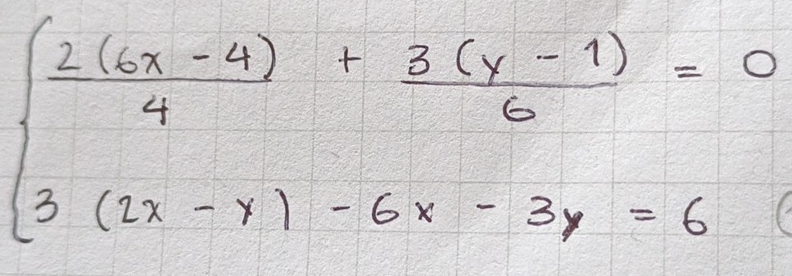 2(6x - 4)/4 + 3(y - 1)/6 = 0
3(2x - y) - 6x - 3y = 6